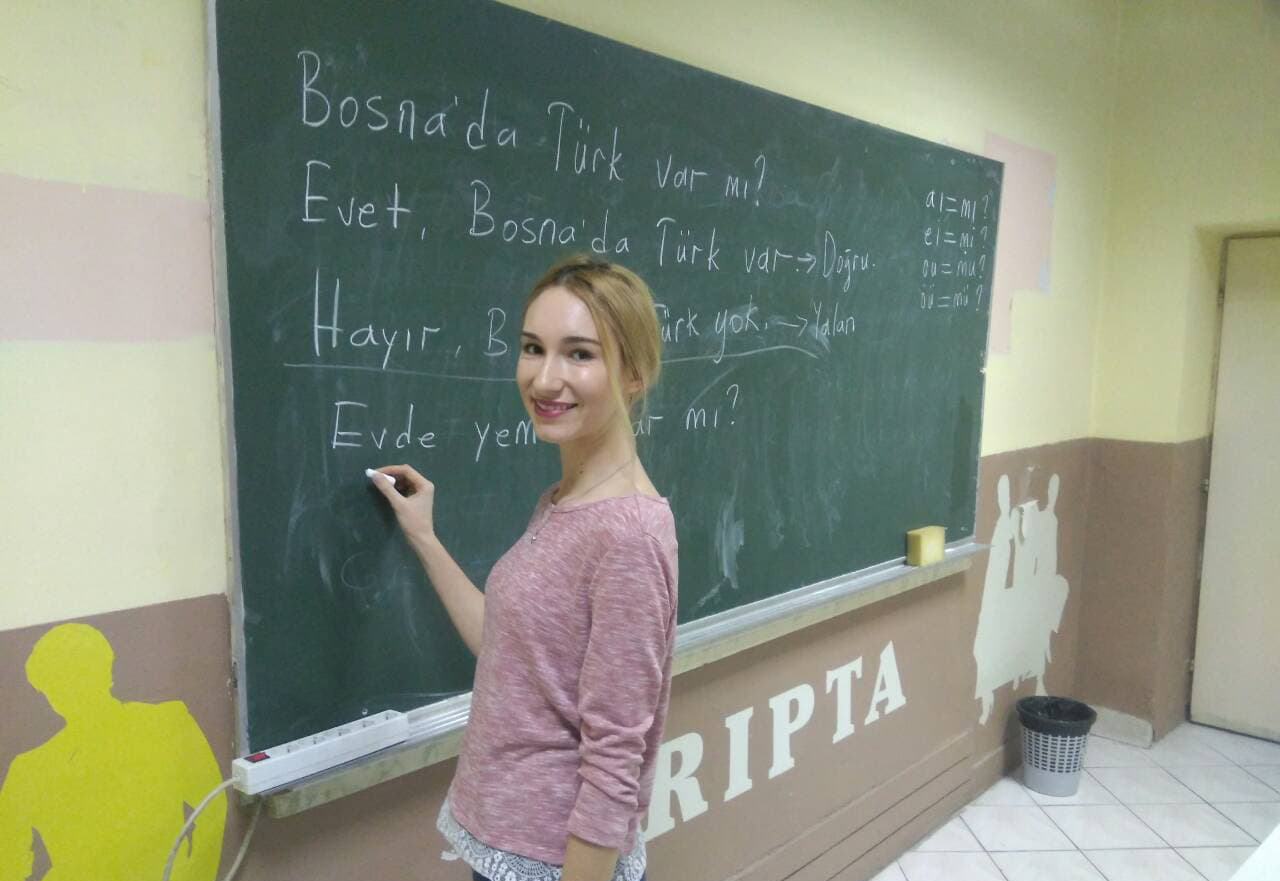 Bosna'da Türk var mı?
Evet, Bosna'da Türk var.→Doğru.
Hayır, B Türk yok.→Yalan
Evde yem ar mı?
aı=mı?
ei=mi?
ou=mu?
öü=mü?
RIPTA